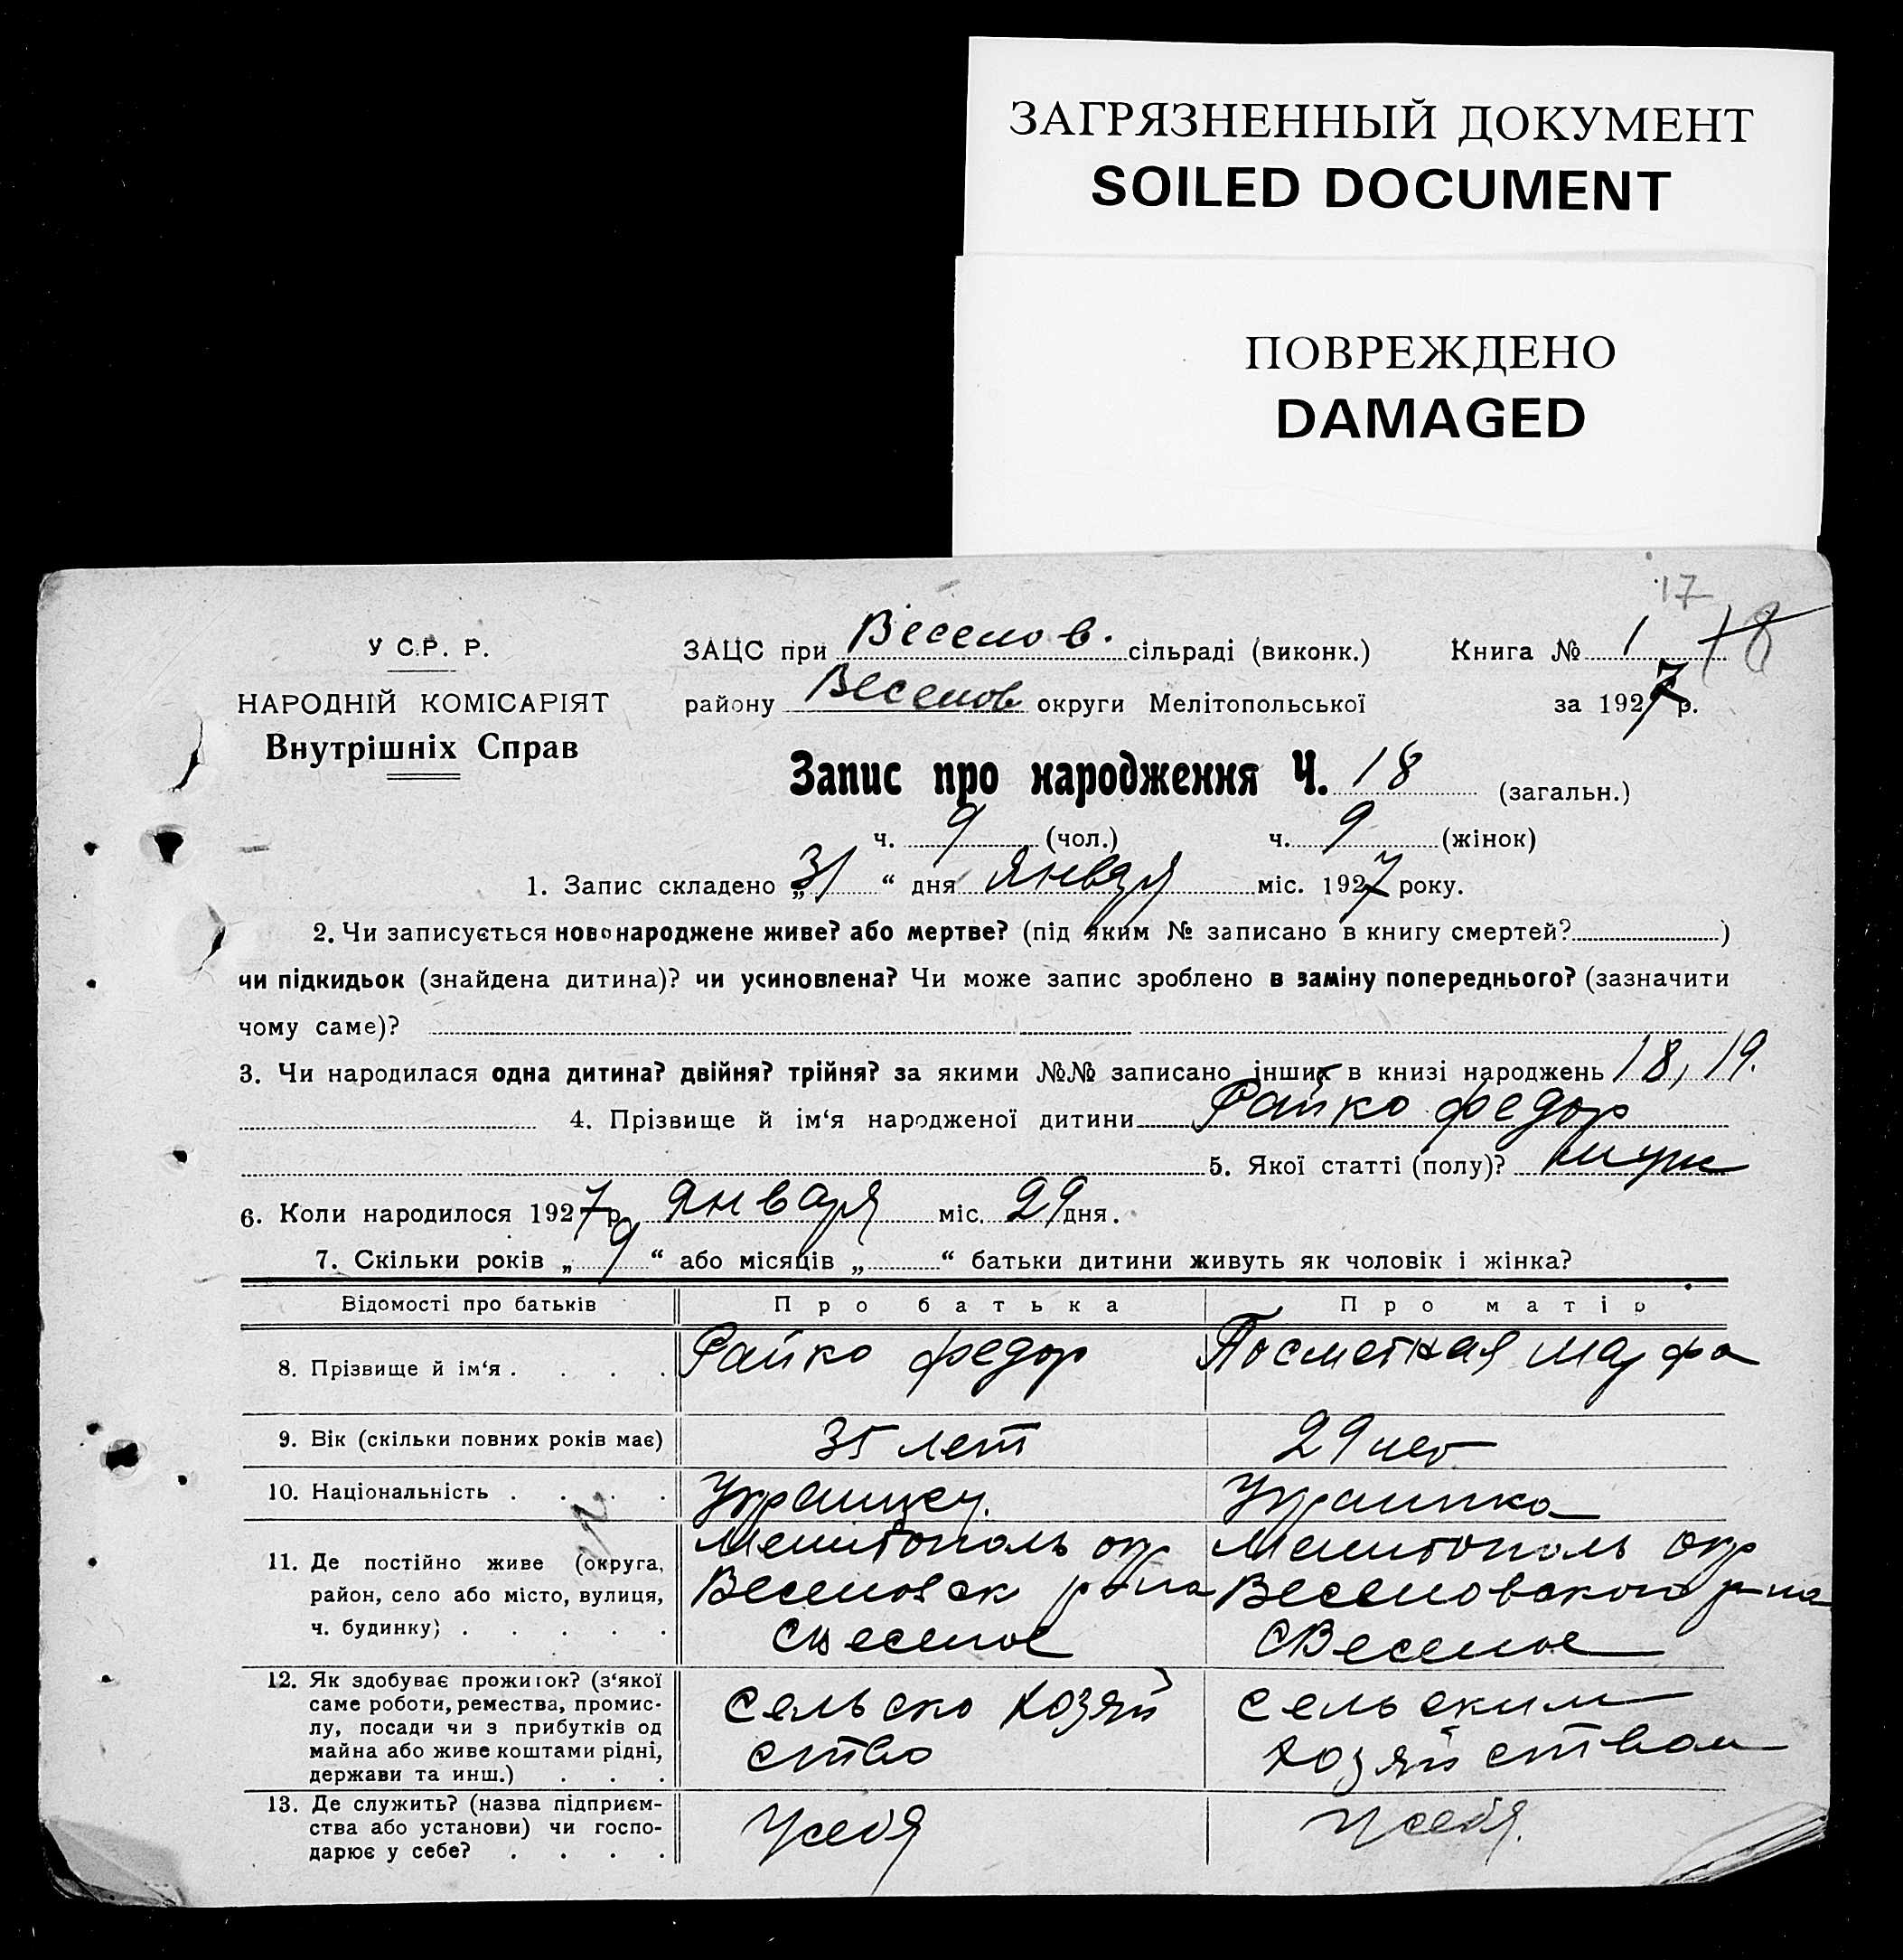 ЗАГРЯЗНЕННЫЙ ДОКУМЕНТ
SOILED DOCUMENT
ПОВРЕЖДЕНО
DAMAGED
17
18
У С.Р. Р.
НАРОДНІЙ КОМІСАРІЯТ
Внутрішніх Справ
ЗАЦС при Веселов. сільраді (виконк.) Книга № 1
району Веселов округи Мелітопольської за 1927 р.
Запис про народження Ч. 18 (загальн.)
ч. 9 (чол.) ч. 9 (жінок)
1. Запис складено „31“ дня Января міс. 1927 року.
2. Чи записується новонароджене живе? або мертве? (під яким № записано в книгу смертей? )
чи підкидьок (знайдена дитина)? чи усиновлена? Чи може запис зроблено в заміну попереднього? (зазначити
чому саме)?
3. Чи народилася одна дитина? двійня? трійня? за якими №№ записано інших в книзі народжень 18, 19.
4. Прізвище й ім‘я народженої дитини Райко Федор
5. Якої статті (полу)? муж
6. Коли народилося 1927 р. Января міс. 29 дня.
7. Скільки років „9“ або місяців „ “ батьки дитини живуть як чоловік і жінка?
Відомості про батьків Про батька Про матір
8. Прізвище й ім‘я . . . . Райко Федор Посметная Марфа
9. Вік (скільки повних років має) 35 лет 29 лет
10. Національність . . . . Украинец. Украинка
11. Де постійно живе (округа,
район, село або місто, вулиця,
ч. будинку) . . . . .
Мелитополь окр
Веселовск р-на
с Веселое
Мелитополь окр
Веселовского р-на
с Веселое
12. Як здобуває прожиток? (з‘якої
саме роботи, ремества, промис-
лу, посади чи з прибутків од
майна або живе коштами рідні,
держави та инш.) . . .
сельско хозяй
ство
сельским
хозяйством
13. Де служить? (назва підприєм-
ства або установи) чи госпо-
дарює у себе? . . . .
У себя
У себя.